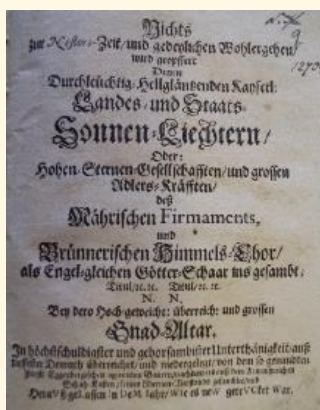 Nichts
zur Nestors-Zeit/ und gedeylichen Wohlergehen/
wird geopffert
Denen
Durchleüchtig-Hellgläntzenden Kayserl:
Landes- und Staats-
Sonnen-Liechtern/
Oder:
Hohen-Sternen-Gesellschafften/ und grossen
Adlers-Kräfften/
deß
Mährischen Firmaments,
und
Brünnerischen Himmels-Thor/
als Engel-gleichen Götter-Schaar ins gesambt/
Titul/ıc.ıc. Titul/ıc.ıc.
N. N.
Bey dero Hoch-geweicht: überreich: und grossen
Gnad-Altar.
In höchstschuldigster und gehorsambister Unterthänigkeit auß
tieffester Demuth überreichet/ und niedergelegt/ von dem so genandten
in DeM Jahr/ WIe es neW getrVCket War.